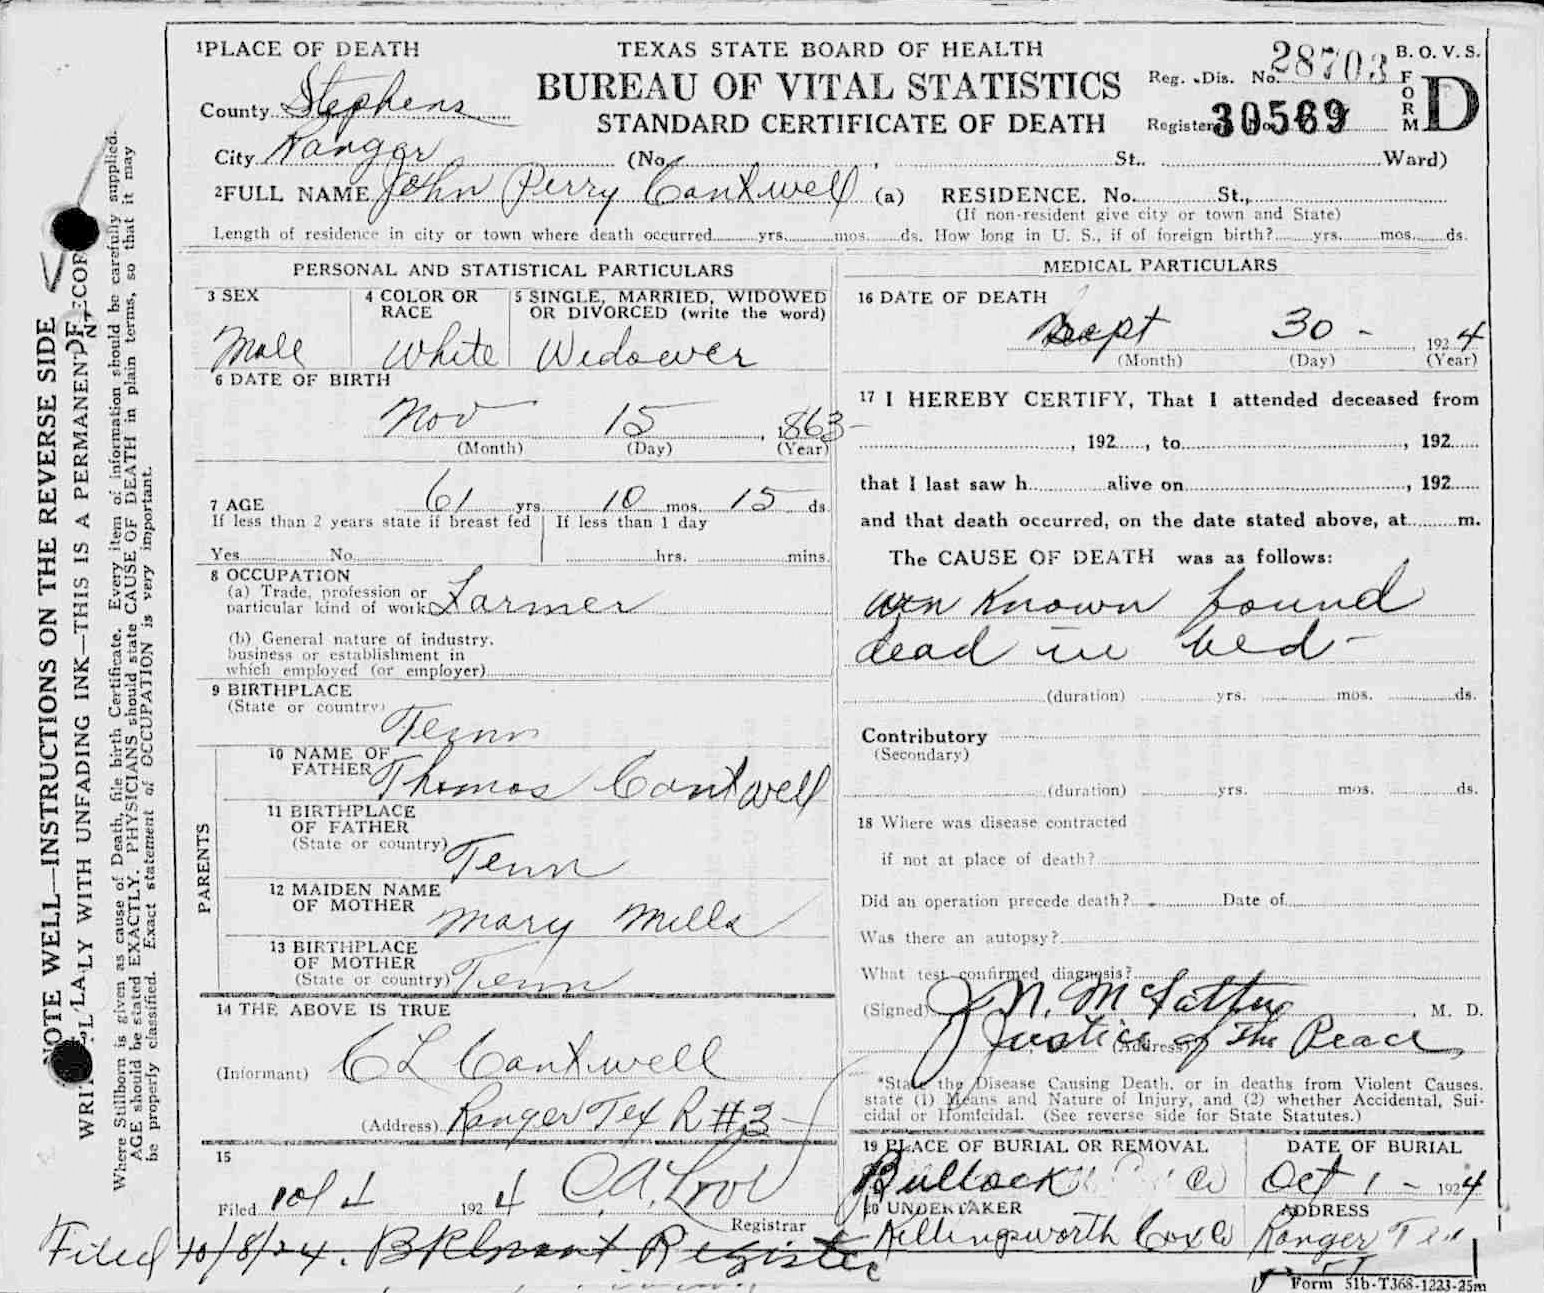 1 PLACE OF DEATH
TEXAS STATE BOARD OF HEALTH
BUREAU OF VITAL STATISTICS
STANDARD CERTIFICATE OF DEATH
Reg. Dis. No. 28703
B. O. V. S.
FORM D
Register No. 30569
County Stephens
City Ranger (No. , St., Ward)
2 FULL NAME John Perry Cantwell (a) RESIDENCE. No. St.,
(If non-resident give city or town and State)
Length of residence in city or town where death occurred yrs. mos. ds. How long in U. S., if of foreign birth? yrs. mos. ds.
PERSONAL AND STATISTICAL PARTICULARS
3 SEX
Male
4 COLOR OR RACE
White
5 SINGLE, MARRIED, WIDOWED
OR DIVORCED (write the word)
Widower
6 DATE OF BIRTH
Nov 15, 1863
(Month) (Day) (Year)
7 AGE 61 yrs. 10 mos. 15 ds.
If less than 2 years state if breast fed
If less than 1 day
Yes No
hrs. mins.
8 OCCUPATION
(a) Trade, profession or
particular kind of work Farmer
(b) General nature of industry,
business or establishment in
which employed (or employer)
9 BIRTHPLACE
(State or country) Tenn
PARENTS
10 NAME OF
FATHER Thomas Cantwell
11 BIRTHPLACE
OF FATHER
(State or country) Tenn
12 MAIDEN NAME
OF MOTHER Mary Mills
13 BIRTHPLACE
OF MOTHER
(State or country) Tenn
14 THE ABOVE IS TRUE
(Informant) C L Cantwell
(Address) Ranger Tex R #3
15
Filed 10/1 1924
Registrar
Filed 10/8/24. Register
MEDICAL PARTICULARS
16 DATE OF DEATH
Sept 30 - 1924
(Month) (Day) (Year)
17 I HEREBY CERTIFY, That I attended deceased from
, 192 , to , 192
that I last saw h alive on , 192
and that death occurred, on the date stated above, at m.
The CAUSE OF DEATH was as follows:
un Known found
dead in bed -
(duration) yrs. mos. ds.
Contributory
(Secondary)
(duration) yrs. mos. ds.
18 Where was disease contracted
if not at place of death?
Did an operation precede death? Date of
Was there an autopsy?
What test confirmed diagnosis?
(Signed) J. N. McFatter, M. D.
(Address) Justice of The Peace
*State the Disease Causing Death, or in deaths from Violent Causes,
state (1) Means and Nature of Injury, and (2) whether Accidental, Sui-
cidal or Homicidal. (See reverse side for State Statutes.)
19 PLACE OF BURIAL OR REMOVAL
Bullock
DATE OF BURIAL
Oct 1 - 1924
20 UNDERTAKER
Killingsworth Cox Co
ADDRESS
Ranger Tex
Form 51b-T368-1223-25m
NOTE WELL—INSTRUCTIONS ON THE REVERSE SIDE
WRITE PLAINLY WITH UNFADING INK—THIS IS A PERMANENT RECORD
Where Stillborn is given as cause of Death, file birth Certificate. Every item of information should be carefully supplied.
AGE should be stated EXACTLY. PHYSICIANS should state CAUSE OF DEATH in plain terms, so that it may
be properly classified. Exact statement of OCCUPATION is very important.